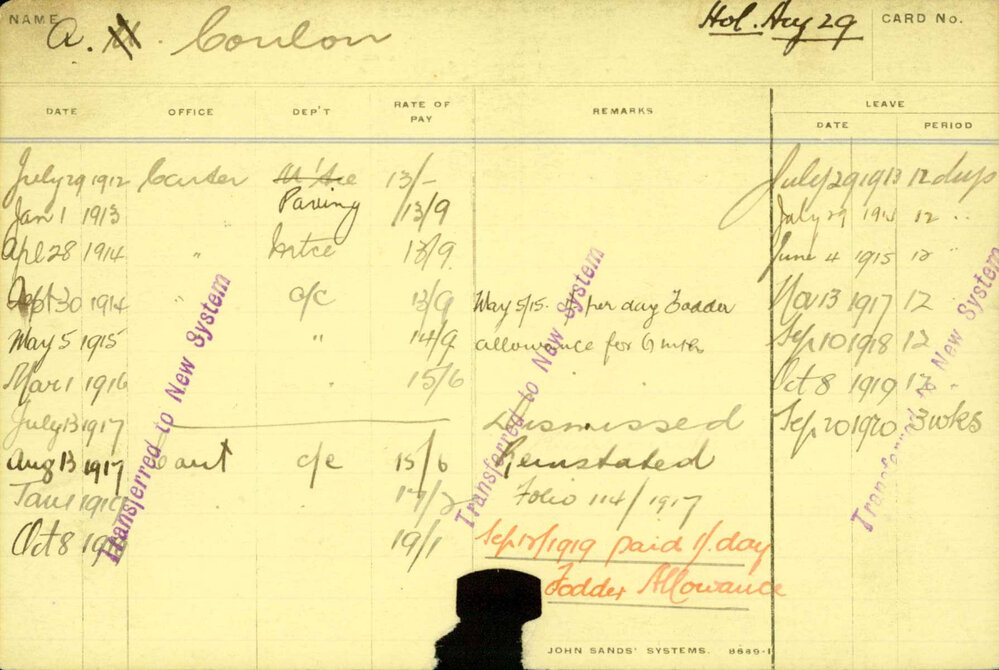 NAME A. Conlon Hol. Aug 29 CARD No.
LEAVE
DATE OFFICE DEP'T RATE OF PAY REMARKS DATE PERIOD
July 29 1912 Carter 13/- July 29 1913 12 days
Jan 1 1913 Paving 13/9 July 29 1914 12 "
Apl 28 1914 " Mtce 13/9 June 4 1915 12 "
Sept 30 1914 " c/c 13/9 May 5/15. per day Fodder Nov 13 1917 12
May 5 1915 " 14/9 allowance for 6 mths Sep 10 1918 12
Mar 1 1916 " 15/6 Oct 8 1919 12 "
July 13 1917 Dismissed Sep 20 1920 3 wks
Aug 13 1917 Cart c/c 15/6 Reinstated
Jan 1 17/2 Folio 114/1917
Oct 8 19/1 Sep 12/1919 paid 1/. day
Fodder Allowance
Transferred to New System
Transferred to New System
Transferred to New System
JOHN SANDS' SYSTEMS. 8689-1